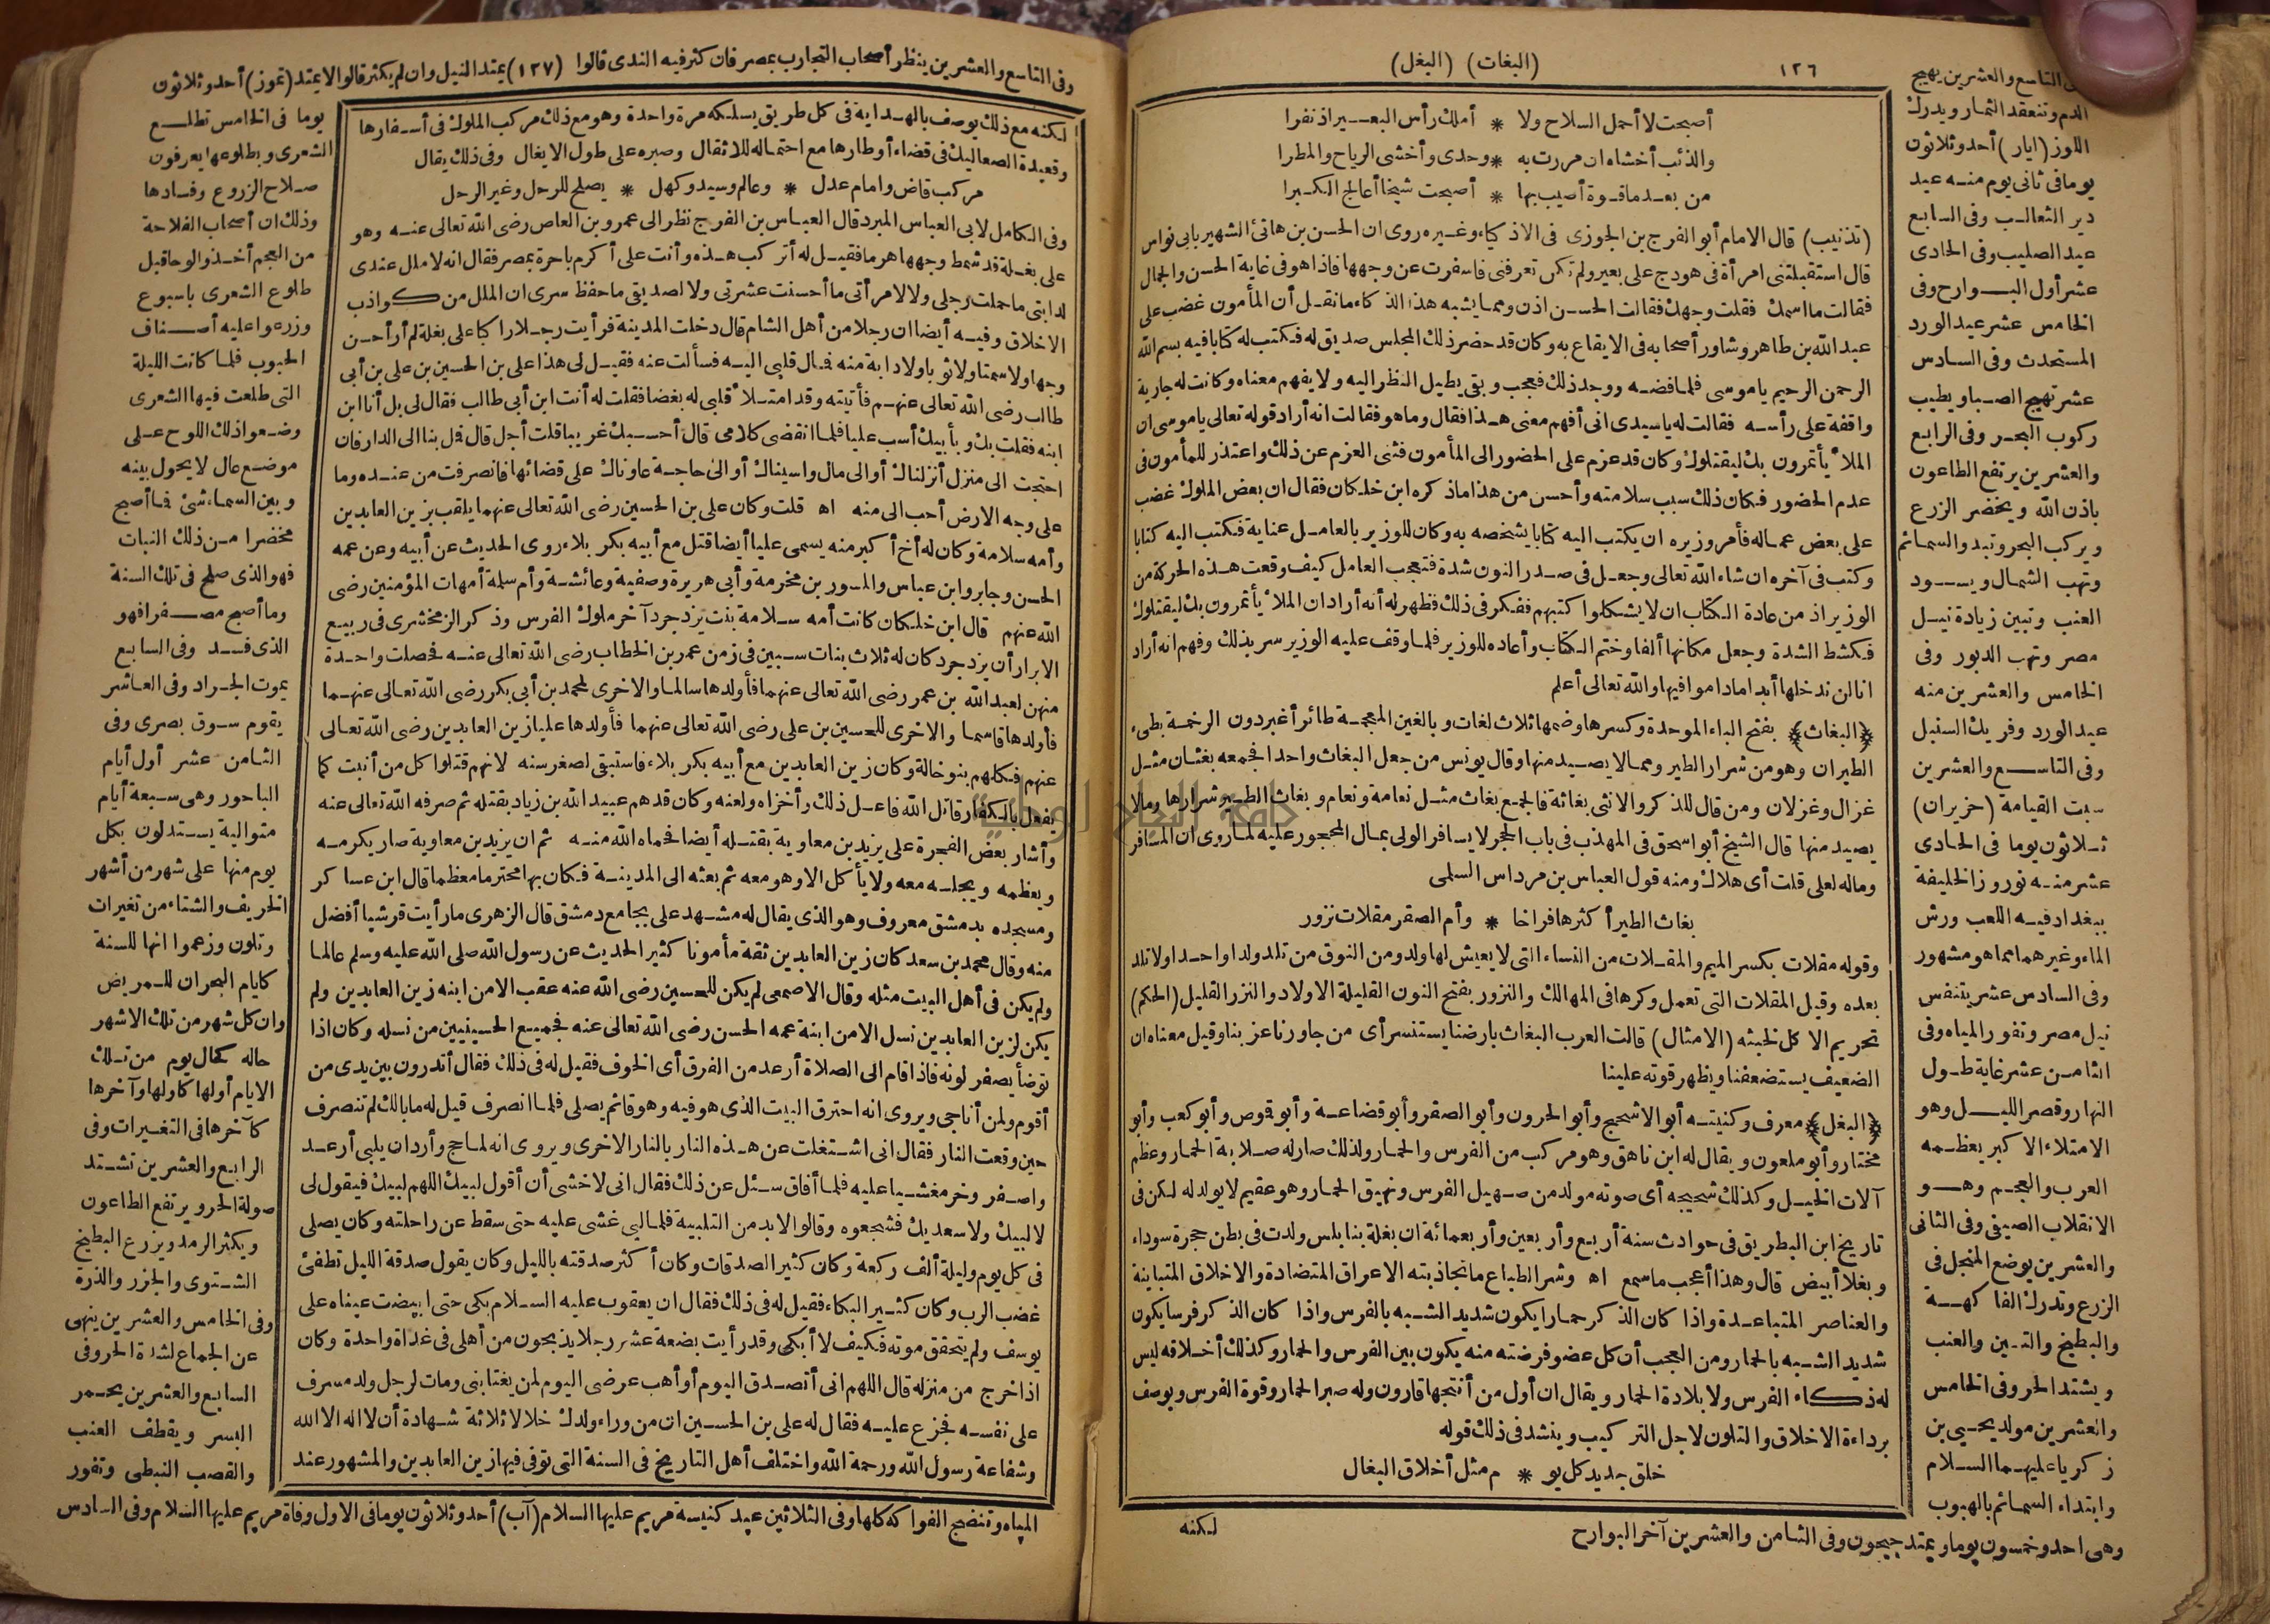 ١٢٦
(البغاث) (البغل)
أصبحت لا أحمل السلاح ولا * أملك رأس البعير اذ نفرا
والذئب أخشاه ان مررت به * وحدى وأخشى الرياح والمطرا
من بعد ما قوة أصيب بها * أصبحت شيخا أعالج الكبرا
(تذنيب) قال الامام أبو الفرج بن الجوزى فى الاذكياء وغيره روى ان الحسن بن هانئ الشهير بابى نواس
قال استقبلتنى امرأة فى هودج على بعير ولم تكن تعرفنى فاسفرت عن وجهها فاذا هو فى غاية الحسن والجمال
فقالت ما اسمك فقلت وجهك فقالت الحسن اذن ومما يشبه هذا الذكاء ما نقل أن المأمون غضب على
عبد الله بن طاهر وشاور أصحابه فى الايقاع به وكان قد حضر ذلك المجلس صديق له فكتب له كتابا فيه بسم الله
الرحمن الرحيم ياموسى فلما فضه ووجد ذلك فعجب وبقى يطيل النظر اليه ولا يفهم معناه وكانت له جارية
واقفة على رأسه فقالت له ياسيدى انى أفهم معنى هذا فقال وما هو فقالت انه أراد قوله تعالى ياموسى ان
الملأ يأتمرون بك ليقتلوك وكان قد عزم على الحضور الى المأمون فثنى العزم عن ذلك واعتذر للمأمون فى
عدم الحضور فكان ذلك سبب سلامته وأحسن من هذا ما ذكره ابن خلكان فقال ان بعض الملوك غضب
على بعض عماله فأمر وزيره ان يكتب اليه كتابا يشخصه به وكان للوزير بالعامل عناية فكتب اليه كتابا
وكتب فى آخره ان شاء الله تعالى وجعل فى صدر النون شدة فتعجب العامل كيف وقعت هذه الحركة من
الوزير اذ من عادة الكتاب ان لا يشكلوا كتبهم ففكر فى ذلك فظهر له أنه أراد ان الملأ يأتمرون بك ليقتلوك
فكشط الشدة وجعل مكانها ألفا وختم الكتاب وأعاده للوزير فلما وقف عليه الوزير سر بذلك وفهم انه أراد
انا لن ندخلها أبدا ما داموا فيها والله تعالى أعلم
﴿البغاث﴾ بفتح الباء الموحدة وكسرها وضمها ثلاث لغات وبالغين المعجمة طائر أغبر دون الرخمة بطىء
الطيران وهو من شرار الطير ومما لا يصيد منها وقال يونس من جعل البغاث واحدا فجمعه بغثان مثل
غزال وغزلان ومن قال للذكر والانثى بغاثة فالجمع بغاث مثل نعامة ونعام وبغاث الطير شرارها ومالا
يصيد منها قال الشيخ أبو اسحق فى المهذب فى باب الحجر لا يسافر الولى بمال المحجور عليه لما روى ان المسافر
وماله لعلى قلت أى هلاك ومنه قول العباس بن مرداس السلمى
بغاث الطير أكثرها فراخا * وأم الصقر مقلات نزور
وقوله مقلات بكسر الميم والمقلات من النساء التى لا يعيش لها ولد ومن النوق من تلد ولدا واحدا ولا تلد
بعده وقيل المقلات التى تعمل وكرها فى المهالك والنزور بفتح النون القليلة الاولاد والنزر القليل (الحكم)
تحريم الاكل لخبثه (الامثال) قالت العرب البغاث بارضنا يستنسر أى من جاورنا عز بنا وقيل معناه ان
الضعيف يستضعفنا ويظهر قوته علينا
﴿البغل﴾ معرف وكنيته أبو الاشحج وأبو الحرون وأبو الصقر وأبو قضاعة وأبو قموص وأبو كعب وأبو
مختار وأبو ملعون ويقال له ابن ناهق وهو مركب من الفرس والحمار ولذلك صار له صلابة الحمار وعظم
آلات الخيل وكذلك شحيجه أى صوته مولد من صهيل الفرس ونهيق الحمار وهو عقيم لا يولد له لكن فى
تاريخ ابن البطريق فى حوادث سنة أربع وأربعين وأربعمائة ان بغلة بنابلس ولدت فى بطن حجرة سوداء
وبغلا أبيض قال وهذا أعجب ما سمع اه وشر الطباع ما تجاذبته الاعراق المتضادة والاخلاق المتباينة
والعناصر المتباعدة واذا كان الذكر حمارا يكون شديد الشبه بالفرس واذا كان الذكر فرسا يكون
شديد الشبه بالحمار ومن العجب أن كل عضو فرضته منه يكون بين الفرس والحمار وكذلك أخلاقه ليس
له ذكاء الفرس ولا بلادة الحمار ويقال ان أول من أنتجها قارون وله صبر الحمار وقوة الفرس ويوصف
برداءة الاخلاق والتلون لاجل التركيب وينشد فى ذلك قوله
خلق جديد كل يو * م مثل أخلاق البغال
لكنه
التاسع والعشرين يهيج
الدم وتنعقد الثمار ويدرك
اللوز (ايار) أحد وثلاثون
يوما فى ثانى يوم منه عيد
دير الثعالب وفى السابع
عيد الصليب وفى الحادى
عشر أول البوارح وفى
الخامس عشر عيد الورد
المستحدث وفى السادس
عشر تهيج الصبا ويطيب
ركوب البحر وفى الرابع
والعشرين يرتفع الطاعون
باذن الله ويخضر الزرع
ويركب البحر وتبدو السمائم
وتهب الشمال ويسود
العنب وتبين زيادة نيل
مصر وتهب الدبور وفى
الخامس والعشرين منه
عيد الورد وفريك السنبل
وفى التاسع والعشرين
سبت القيامة (حزيران)
ثلاثون يوما فى الحادى
عشر منه نوروز الخليفة
ببغداد فيه اللعب ورش
الماء وغيرهما مما هو مشهور
وفى السادس عشر يتنفس
نيل مصر وتفور المياه وفى
الثامن عشر غاية طول
النهار وقصر الليل وهو
الامتلاء الاكبر يعظمه
العرب والعجم وهو
الانقلاب الصيفى وفى الثانى
والعشرين يوضع المنجل فى
الزرع وتدرك الفاكهة
والبطيخ والتين والعنب
ويشتد الحر وفى الخامس
والعشرين مولد يحيى بن
زكريا عليهما السلام
وابتداء السمائم بالهبوب
وهى احد وخمسون يوما ويمتد جيحون وفى الثامن والعشرين آخر البوارح
وفى التاسع والعشرين ينظر أصحاب التجارب بمصر فان كثر فيه الندى قالوا (١٢٧) يمتد النيل وان لم يكثر قالوا لا يمتد (تموز) أحد وثلاثون
لكنه مع ذلك يوصف بالهداية فى كل طريق يسلكه مرة واحدة وهو مع ذلك مركب الملوك فى أسفارها
وقعيدة الصعاليك فى قضاء أوطارها مع احتماله للاثقال وصبره على طول الايغال وفى ذلك يقال
مركب قاض وامام عدل * وعالم وسيد وكهل * يصلح للرحل وغير الرحل
وفى الكامل لابى العباس المبرد قال العباس بن الفرج نظر الى عمرو بن العاص رضى الله تعالى عنه وهو
على بغلة قد شمط وجهها هرما فقيل له أتركب هذه وأنت على أكرم باحرة بمصر فقال انه لا ملل عندى
لدابتى ما حملت رجلى ولا لامرأتى ما أحسنت عشرتى ولا لصديقى ما حفظ سرى ان الملل من كواذب
الاخلاق وفيه أيضا ان رجلا من أهل الشام قال دخلت المدينة فرأيت رجلا راكبا على بغلة لم أر أحسن
وجها ولا سمتا ولا ثوبا ولا دابة منه فمال قلبى اليه فسألت عنه فقيل لى هذا على بن الحسين بن على بن أبى
طالب رضى الله تعالى عنهم فأتيته وقد امتلأ قلبى له بغضا فقلت له أنت ابن أبى طالب فقال لى بل أنا ابن
ابنه فقلت بك وبأبيك أسب عليا فلما انقضى كلامى قال أحسبك غريبا قلت أجل قال فمل بنا الى الدار فان
احتجت الى منزل أنزلناك أو الى مال واسيناك أو الى حاجة عاوناك على قضائها فانصرفت من عنده وما
على وجه الارض أحب الى منه اه قلت وكان على بن الحسين رضى الله تعالى عنهما يلقب بزين العابدين
وأمه سلامة وكان له أخ أكبر منه يسمى عليا أيضا قتل مع أبيه بكربلاء روى الحديث عن أبيه وعن عمه
الحسن وجابر وابن عباس والمسور بن مخرمة وأبى هريرة وصفية وعائشة وأم سلمة أمهات المؤمنين رضى
الله عنهم قال ابن خلكان كانت أمه سلامة بنت يزدجرد آخر ملوك الفرس وذكر الزمخشرى فى ربيع
الابرار أن يزدجرد كان له ثلاث بنات سبين فى زمن عمر بن الخطاب رضى الله تعالى عنه فحصلت واحدة
منهن لعبد الله بن عمر رضى الله تعالى عنهما فأولدها سالما والاخرى لمحمد بن أبى بكر رضى الله تعالى عنهما
فأولدها قاسما والاخرى للحسين بن على رضى الله تعالى عنهما فأولدها عليا زين العابدين رضى الله تعالى
عنهم فكلهم بنو خالة وكان زين العابدين مع أبيه بكربلاء فاستبقى لصغر سنه لانهم قتلوا كل من أنبت كما
يفعل بالكفار قاتل الله فاعل ذلك وأخزاه ولعنه وكان قد هم عبيد الله بن زياد بقتله ثم صرفه الله تعالى عنه
وأشار بعض الفجرة على يزيد بن معاوية بقتله أيضا فحماه الله منه ثم ان يزيد بن معاوية صار يكرمه
ويعظمه ويجلسه معه ولا يأكل الا وهو معه ثم بعثه الى المدينة فكان بها محترما معظما قال ابن عساكر
ومسجده بدمشق معروف وهو الذى يقال له مشهد على بجامع دمشق قال الزهرى ما رأيت قرشيا أفضل
منه وقال محمد بن سعد كان زين العابدين ثقة مأمونا كثير الحديث عن رسول الله صلى الله عليه وسلم عالما
ولم يكن فى أهل البيت مثله وقال الاصمعى لم يكن للحسين رضى الله عنه عقب الا من ابنه زين العابدين ولم
يكن لزين العابدين نسل الا من ابنة عمه الحسن رضى الله تعالى عنه فجميع الحسينيين من نسله وكان اذا
توضأ يصفر لونه فاذا قام الى الصلاة أرعد من الفرق أى الخوف فقيل له فى ذلك فقال أتدرون بين يدى من
أقوم ولمن أناجى ويروى انه احترق البيت الذى هو فيه وهو قائم يصلى فلما انصرف قيل له ما بالك لم تنصرف
حين وقعت النار فقال انى اشتغلت عن هذه النار بالنار الاخرى ويروى انه لما حج وأراد ان يلبى أرعد
واصفر وخر مغشيا عليه فلما أفاق سئل عن ذلك فقال انى لاخشى أن أقول لبيك اللهم لبيك فيقول لى
لا لبيك ولا سعديك فشجعوه وقالوا لابد من التلبية فلما لبى غشى عليه حتى سقط عن راحلته وكان يصلى
فى كل يوم وليلة ألف ركعة وكان كثير الصدقات وكان أكثر صدقته بالليل وكان يقول صدقة الليل تطفئ
غضب الرب وكان كثير البكاء فقيل له فى ذلك فقال ان يعقوب عليه السلام بكى حتى ابيضت عيناه على
يوسف ولم يتحقق موته فكيف لا أبكى وقد رأيت بضعة عشر رجلا يذبحون من أهلى فى غداة واحدة وكان
اذا خرج من منزله قال اللهم انى أتصدق اليوم أو أهب عرضى اليوم لمن يغتابنى ومات لرجل ولد مسرف
على نفسه فجزع عليه فقال له على بن الحسين ان من وراء ولدك خلالا ثلاثة شهادة أن لا اله الا الله
وشفاعة رسول الله ورحمة الله واختلف أهل التاريخ فى السنة التى توفى فيها زين العابدين والمشهور عند
يوما فى الخامس تطلع
الشعرى وبطلوعها يعرفون
صلاح الزروع وفسادها
وذلك ان أصحاب الفلاحة
من العجم أخذوا لوحا قبل
طلوع الشعرى باسبوع
وزرعوا عليه أصناف
الحبوب فلما كانت الليلة
التى طلعت فيها الشعرى
وضعوا ذلك اللوح على
موضع عال لا يحول بينه
وبين السماء شئ فما أصبح
مخضرا من ذلك النبات
فهو الذى صلح فى تلك السنة
وما أصبح مصفرا فهو
الذى فسد وفى السابع
يموت الجراد وفى العاشر
يقوم سوق بصرى وفى
الثامن عشر أول أيام
الباحور وهى سبعة أيام
متوالية يستدلون بكل
يوم منها على شهر من أشهر
الخريف والشتاء من تغيرات
وتلون وزعموا انها للسنة
كايام البحران للمريض
وان كل شهر من تلك الاشهر
حاله كحال يوم من تلك
الايام أولها كاولها وآخرها
كآخرها فى التغيرات وفى
الرابع والعشرين تشتد
صولة الحر ويرتفع الطاعون
ويكثر الرمد ويزرع البطيخ
الشتوى والجزر والذرة
وفى الخامس والعشرين ينهى
عن الجماع لشدة الحر وفى
السابع والعشرين يحمر
البسر ويقطف العنب
والقصب النبطى وتفور
المياه وتنضج الفواكه كلها وفى الثلاثين عيد كنيسة مريم عليها السلام (آب) أحد وثلاثون يوما فى الاول وفاة مريم عليها السلام وفى السادس